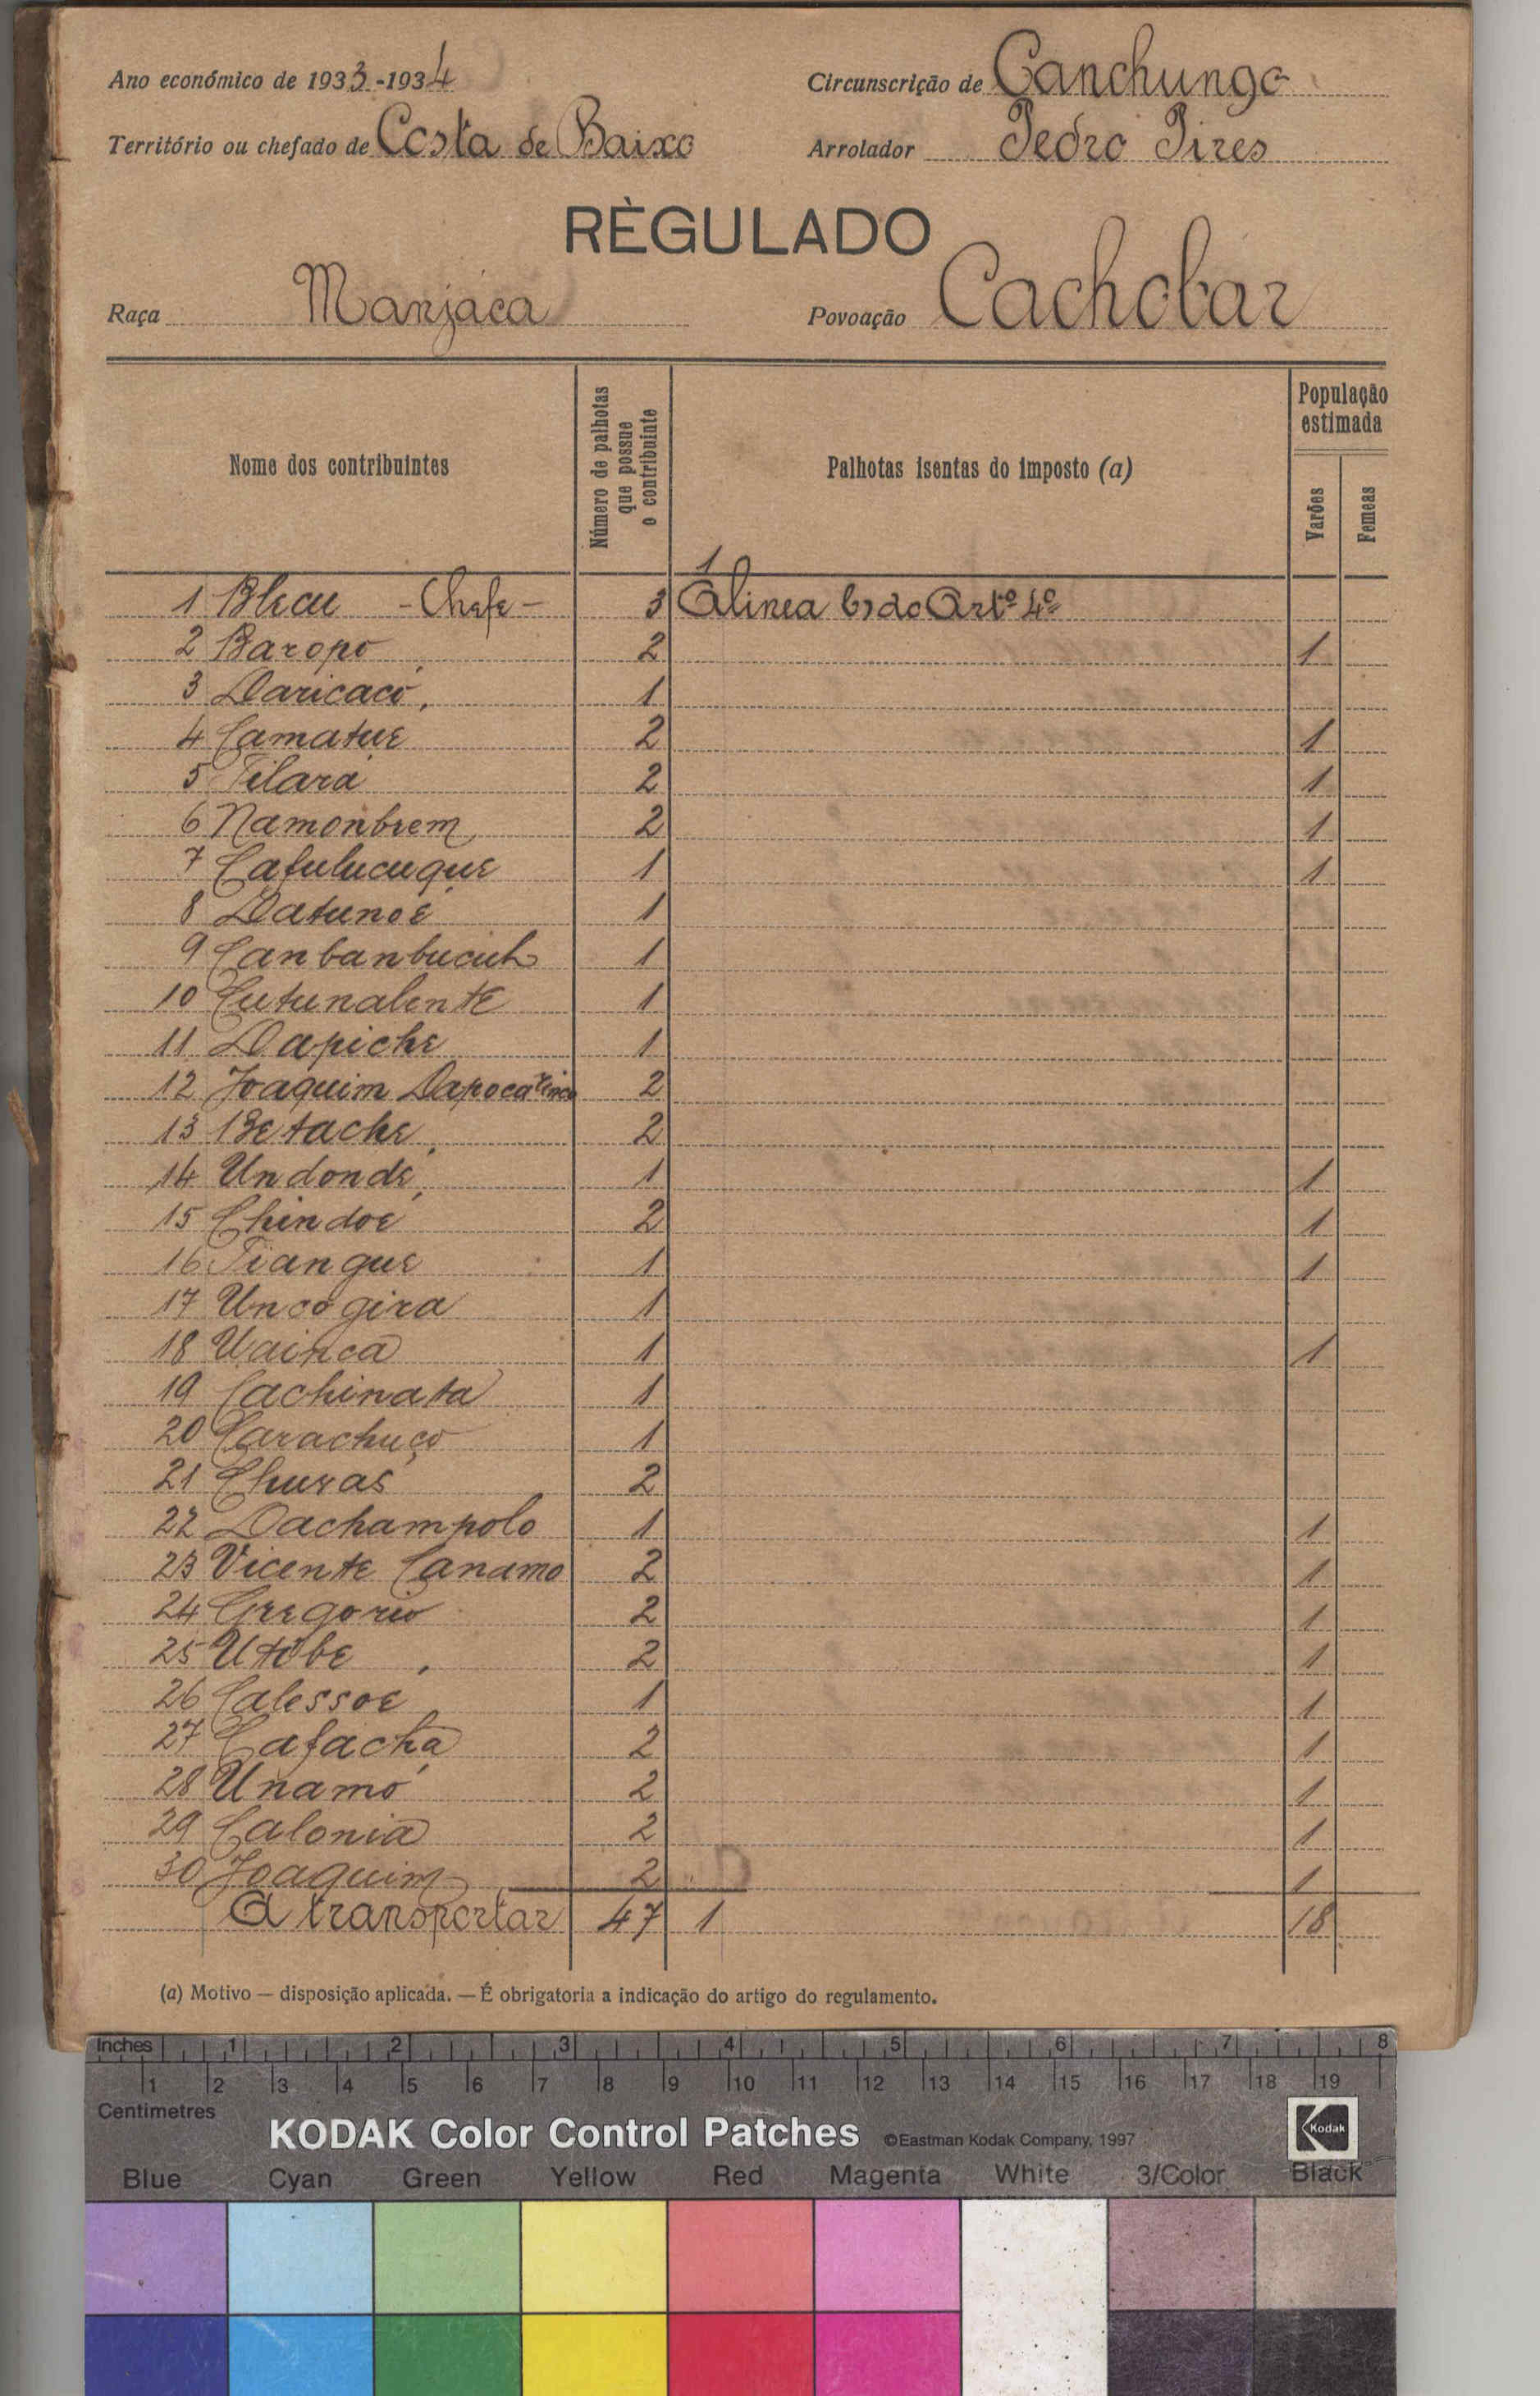 Ano económico de 1933-1934 Circunscrição de Canchungo
Território ou chefado de Costa de Baixo Arrolador Pedro Pires
RÈGULADO
Raça Manjáca Povoação Cachobar
Nome dos contribuintes
Número de palhotas que possue o contribuinte
Palhotas isentas do imposto (a)
População estimada
Varões
Femeas
1
1 Blecu -Chefe- 3 Alinea b) do Artº 4º
2 Baropo 2 1
3 Daricacó 1
4 Camatue 2 1
5 Tilará 2 1
6 Namonbrem 2 1
7 Cafulucuque 1 1
8 Datunoé 1
9 Canbanbucuh 1
10 Cutunalente 1
11 Dapiche 1
12 Joaquim 2
13 Betache 2
14 Undonde 1 1
15 Chindoe 2 1
16 Tiangue 1 1
17 Uncogira 1
18 Uainca 1 1
19 Cachinata 1
20 Carachuço 1
21 Churas 2
22 Dachampolo 1 1
23 Vicente Canamo 2 1
24 Gregorio 2 1
25 Utobe 2 1
26 Calessoe 1 1
27 Cafacha 2 1
28 Unamó 2 1
29 Calonia 2 1
30 Joaquim 2 1
A transportar 47 1 18
(a) Motivo — disposição aplicada. — É obrigatoria a indicação do artigo do regulamento.
Inches 1 2 3 4 5 6 7 8
1 2 3 4 5 6 7 8 9 10 11 12 13 14 15 16 17 18 19
Centimetres
KODAK Color Control Patches ©Eastman Kodak Company, 1997 Kodak
Blue Cyan Green Yellow Red Magenta White 3/Color Black